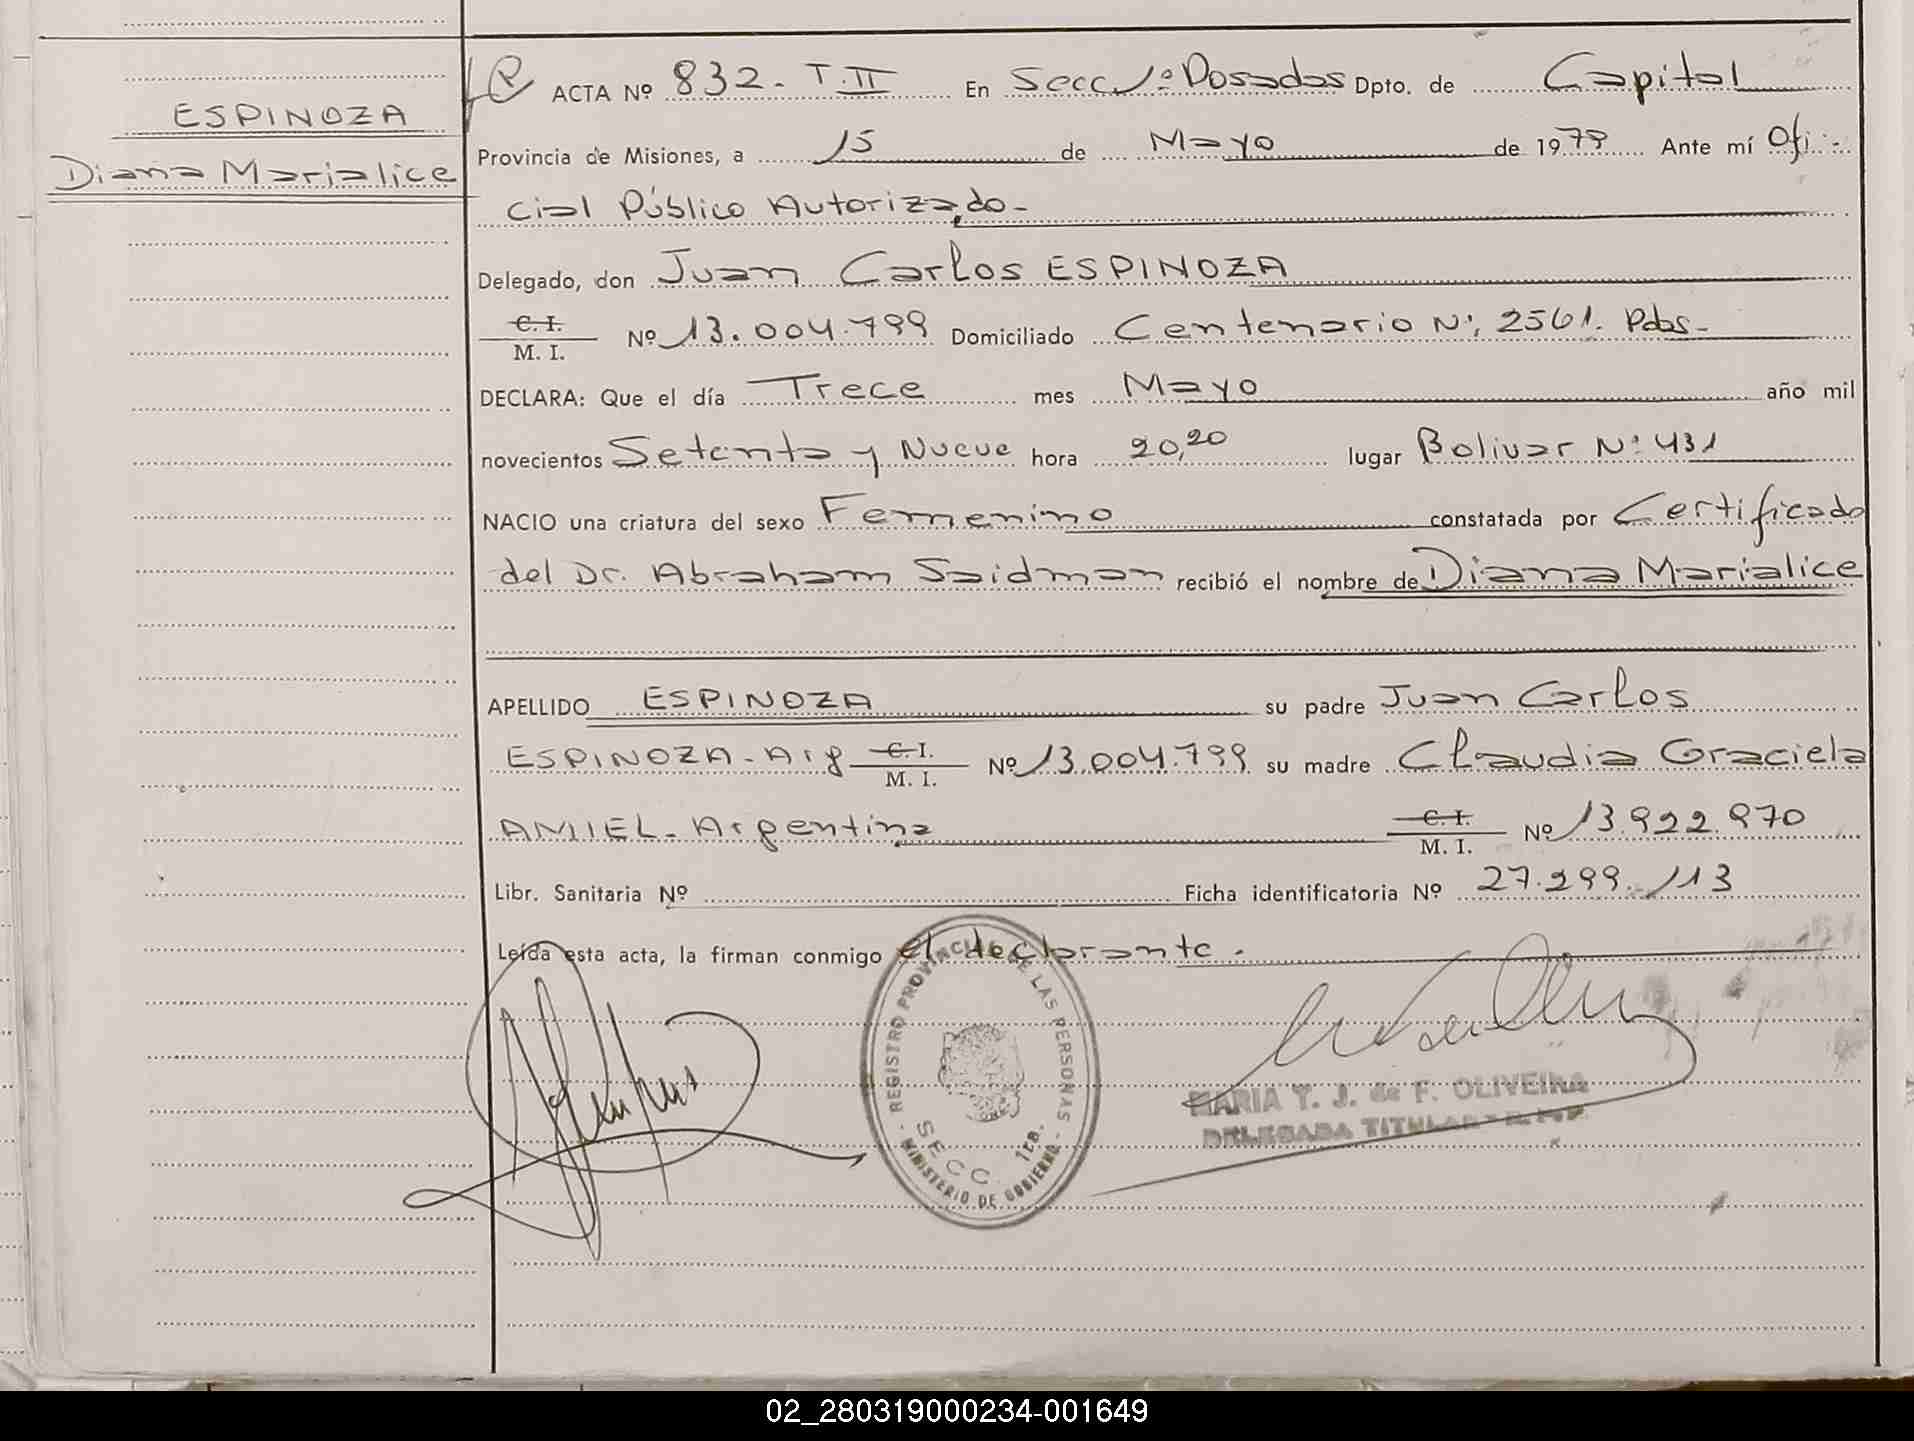 ESPINOZA
Diana Marialice
ACTA Nº 832. T. II En Secc 1º Posadas Dpto. de Capital
Provincia de Misiones, a 15 de Mayo de 1979 Ante mí Ofi-
cial Público Autorizado-
Delegado, don Juan Carlos ESPINOZA
C. I. / M. I. Nº 13.004.799 Domiciliado Centenario Nº 2561. Pdas-
DECLARA: Que el día Trece mes Mayo año mil
novecientos Setenta y Nueve hora 20,20 lugar Bolivar Nº 431
NACIO una criatura del sexo Femenino constatada por Certificado
del Dr. Abraham Saidman recibió el nombre de Diana Marialice
APELLIDO ESPINOZA su padre Juan Carlos
ESPINOZA-Arg C. I. / M. I. Nº 13.004.799 su madre Claudia Graciela
AMIEL-Argentina C. I. / M. I. Nº 13.922.970
Libr. Sanitaria Nº Ficha identificatoria Nº 27.299.113
Leída esta acta, la firman conmigo el declarante.
REGISTRO PROVINCIAL DE LAS PERSONAS
SECC. 1ra.
MINISTERIO DE GOBIERNO
MARIA Y. J. de F. OLIVEIRA
DELEGADA TITULAR
02_280319000234-001649